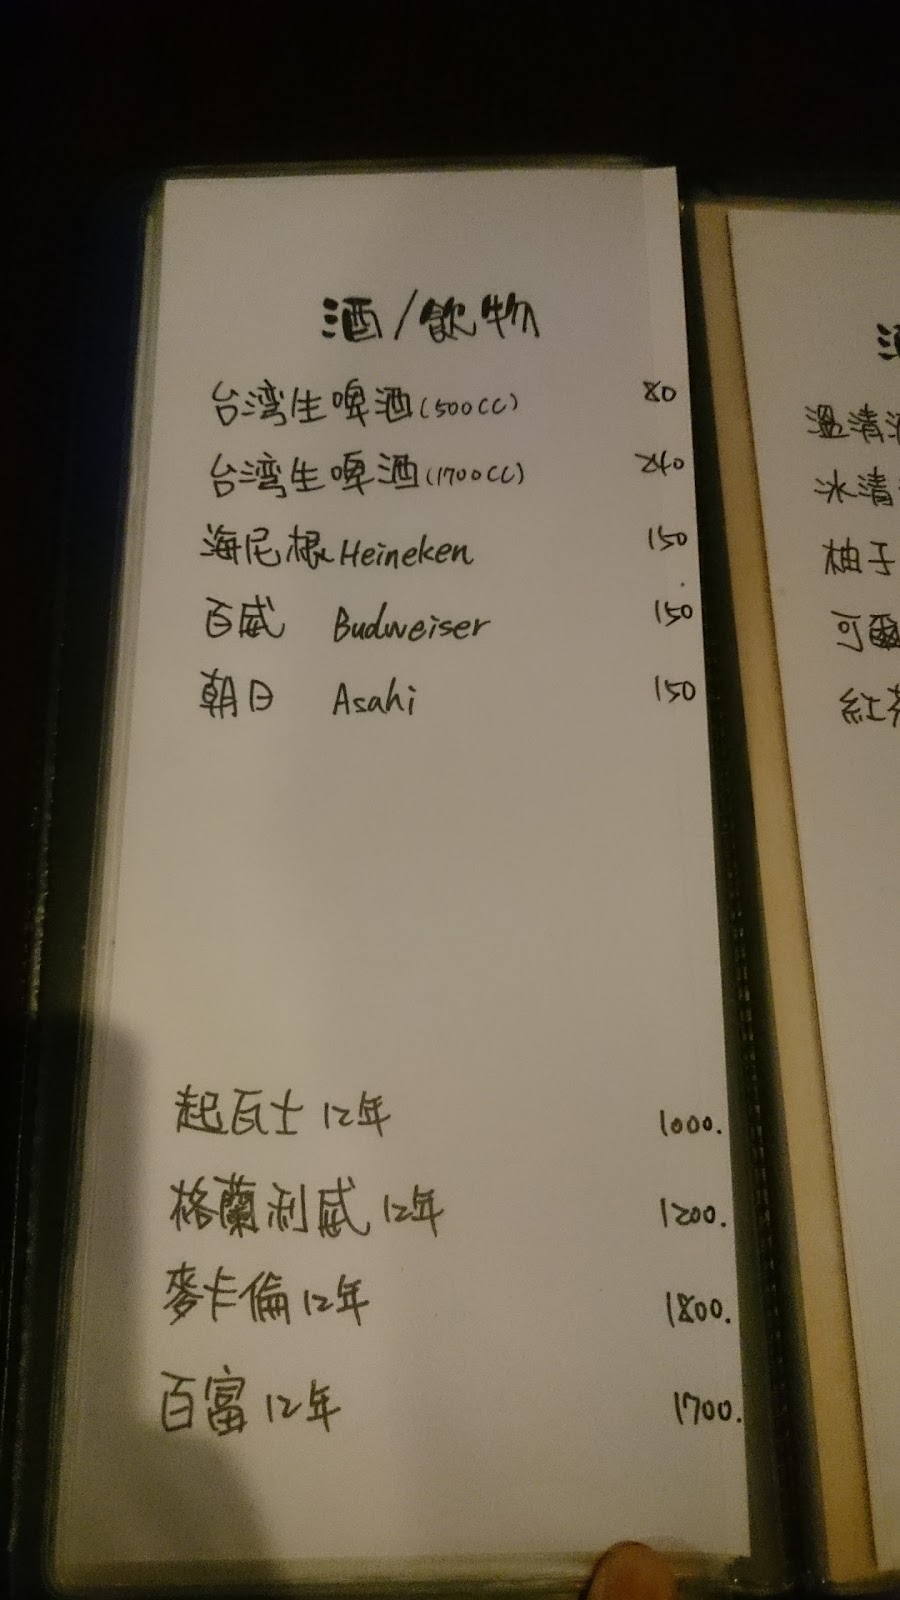 酒/飲物
台湾生啤酒(500CC) 80
台湾生啤酒(1700CC) 240
海尼根 Heineken 150
百威 Budweiser 150
朝日 Asahi 150
起瓦士 12年 1000.
格蘭利威 12年 1200.
麥卡倫 12年 1800.
百富 12年 1700.
溫清
冰清
柚子
可爾
紅